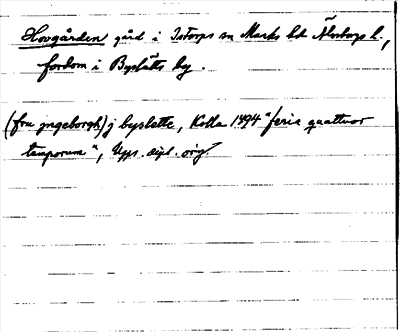 Hovgården gård i Istorps sn Marks hd Älvsborgs l.,
fordom i Byslätts by.
(fru yngeborgh) j byslette, Kolla 1494 "feria quattuor
temporum", Upps. dipl. orig.